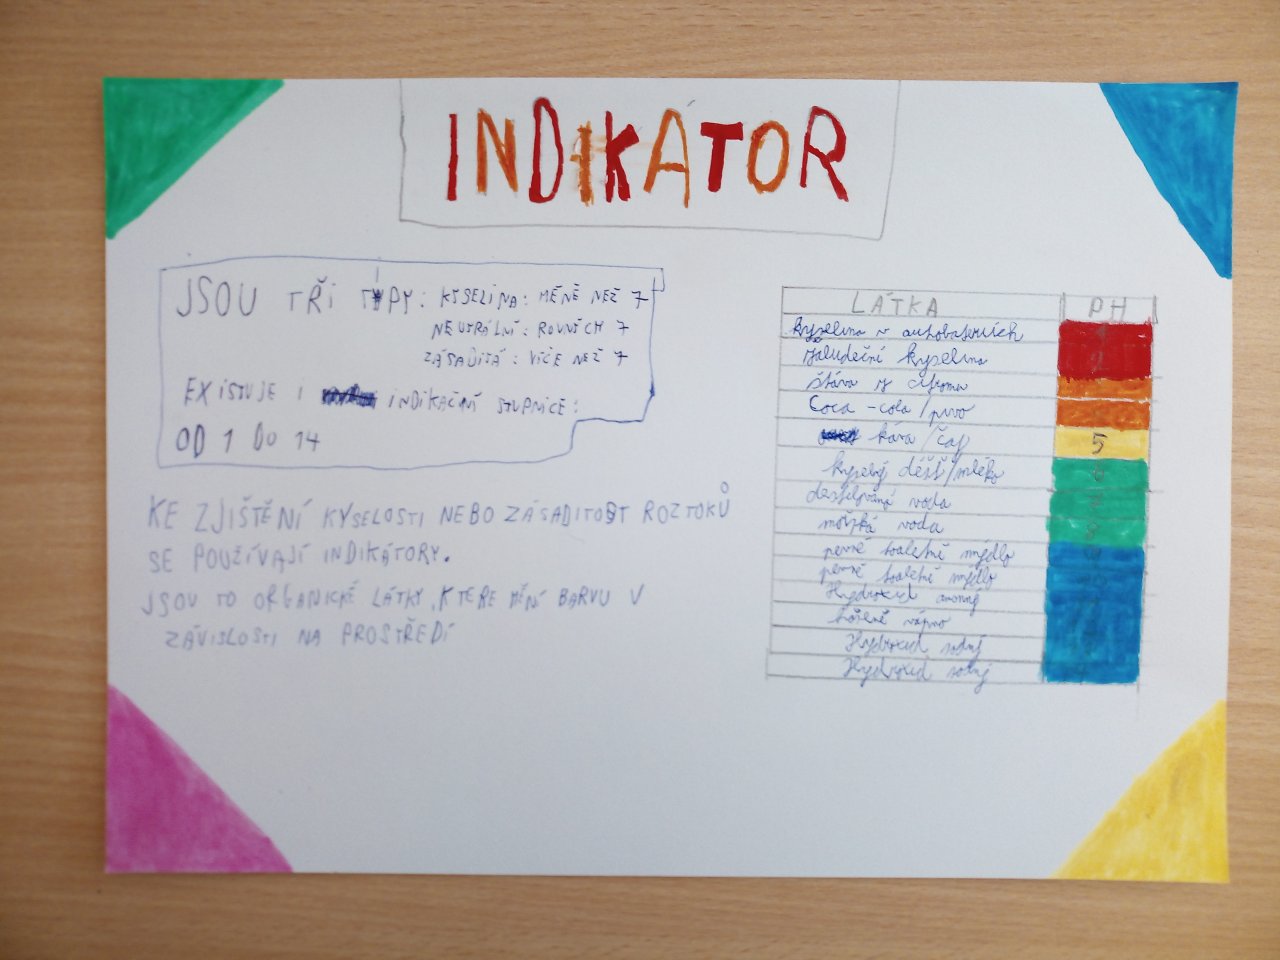 INDIKÁTOR
JSOU TŘI TYPY: KYSELINA: MÉNĚ NEŽ 7
NEUTRÁLNÍ: ROVNÝCH 7
ZÁSADITÁ: VÍCE NEŽ 7
EXISTUJE I INDIKAČNÍ STUPNICE:
OD 1 DO 14
KE ZJIŠTĚNÍ KYSELOSTI NEBO ZÁSADITOST ROZTOKŮ
SE POUŽÍVAJÍ INDIKÁTORY.
JSOU TO ORGANICKÉ LÁTKY, KTERE MĚNÍ BARVU V
ZÁVISLOSTI NA PROSTŘEDÍ
LÁTKA PH
kyselina v autobateriích
žaludeční kyselina
štáva z citronu
Coca-cola/pivo
káva/čaj 5
kyselý déšť/mléko
destilovaná voda
mořská voda
pevné toaletné mýdlo
pevné toaletné mýdlo
Hydroxid amonný
hášené vápno
Hydroxid sodný
Hydroxid sodný